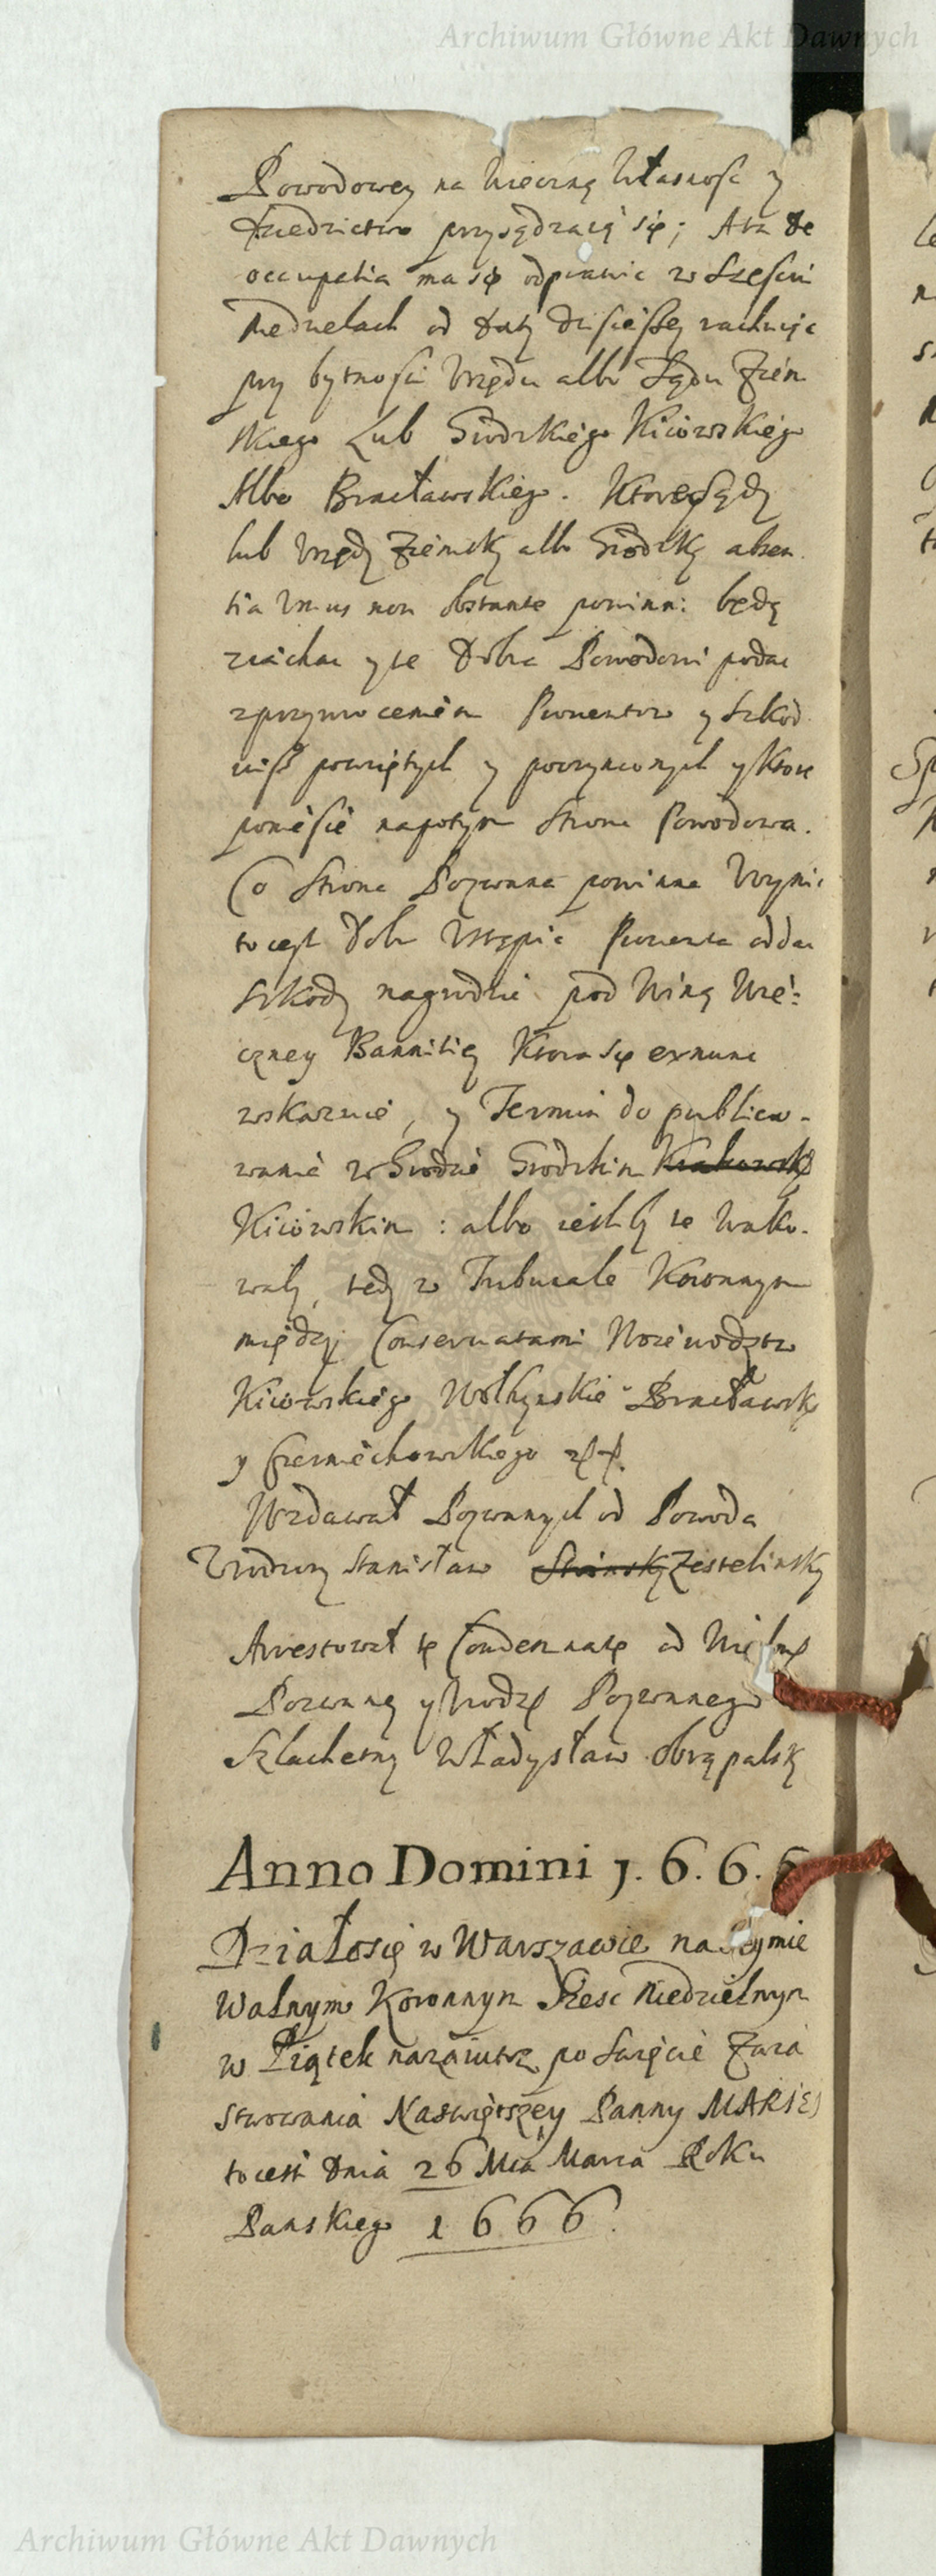 Archiwum Główne Akt Dawnych
Powodowey na wieczną własnosc y
dziedzictwo przysądzaią się; Ata de
occupatia ma się odprawic w szesciu
niedzielach od daty dzisieyszey rachuiąc
przy bytnosci Vrzędu albo Sądu Ziem
skiego Lub Grodzkiego Kiiowskiego
Albo Bracławskiego. Ktore Sądy
lub Vrzędy Ziemsky albo Grodzky absen
tia Vnius non obstante powinni będą
ziachac y te dobra Powodowi podac
z przywrocenięm Prouentow y szkod
wyß powziętych y poczynionych y ktore
poniesie napotym Strona Powodowa.
Co Strona Pozwana powinna Vczynic
to iest dobr Vstąpic Prouenta oddac
szkody nagrodzic pod winą Wie:
czney Bannitiey Ktora się ex nunc
wskazuie, y Termin do publico-
wania w Grodzie Grodzkim Krakowsk
Kiiowskim : albo iesliby te wako-
waly, tedy w Tribunale Koronnym
między Conservatami Woiewodztw
Kiiowskiego Wołhynskie Bracławsk
y Czerniechowskiego
Wzdawał Pozwanych od Powoda
Vrodzony Stanisław
Arrestował tę Condemnatę od
Pozwaney y Pozwanego
Szlachetny Władysław
Anno Domini 1.6.6.6
Działosię w Warszawie na Seymie
Walnym Koronnym Szesc Niedzielnym
w Piątek nazaiutrz po Swięcie Zwia
stowania Naswiętszey Panny MARIEJ
to iest Dnia 26 Mca Marca Roku
Panskiego 1666.
Archiwum Główne Akt Dawnych